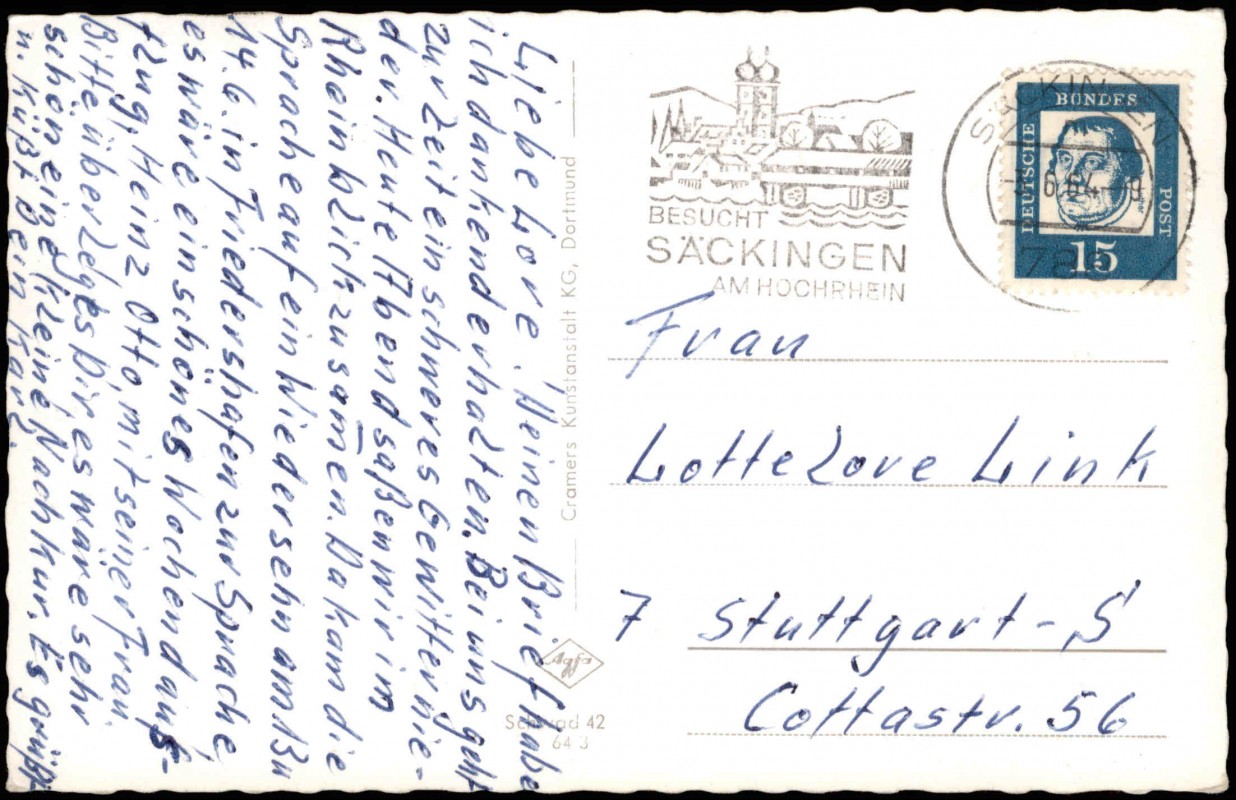 Liebe Lore. Deinen Brief habe
ich dankend erhalten. Bei uns geht
zur Zeit ein schweres Gewitter nie-
der. Heute Abend saßen wir im
Rheinblich zusam̅en. Da kam die
Sprache auf ein Wiedersehn am 13u
14.6. in Friedershafen zur Sprache
es wäre ein schönes Wochendaus-
flug, Heinz Otto, mit seiner Frau
Bitte überleges Dir es ware sehr
schön eine kleine Nachkur. Es grüßt
u. küßt Dein Karl.
Cramers Kunstanstalt KG, Dortmund
Agfa
Schwad 42
64 3
BESUCHT
SÄCKINGEN
AM HOCHRHEIN
SÄCKINGEN
-5.6.64-9
788
DEUTSCHE BUNDESPOST
15
Frau
Lottelore Link
7 Stuttgart-S
Cottastr. 56